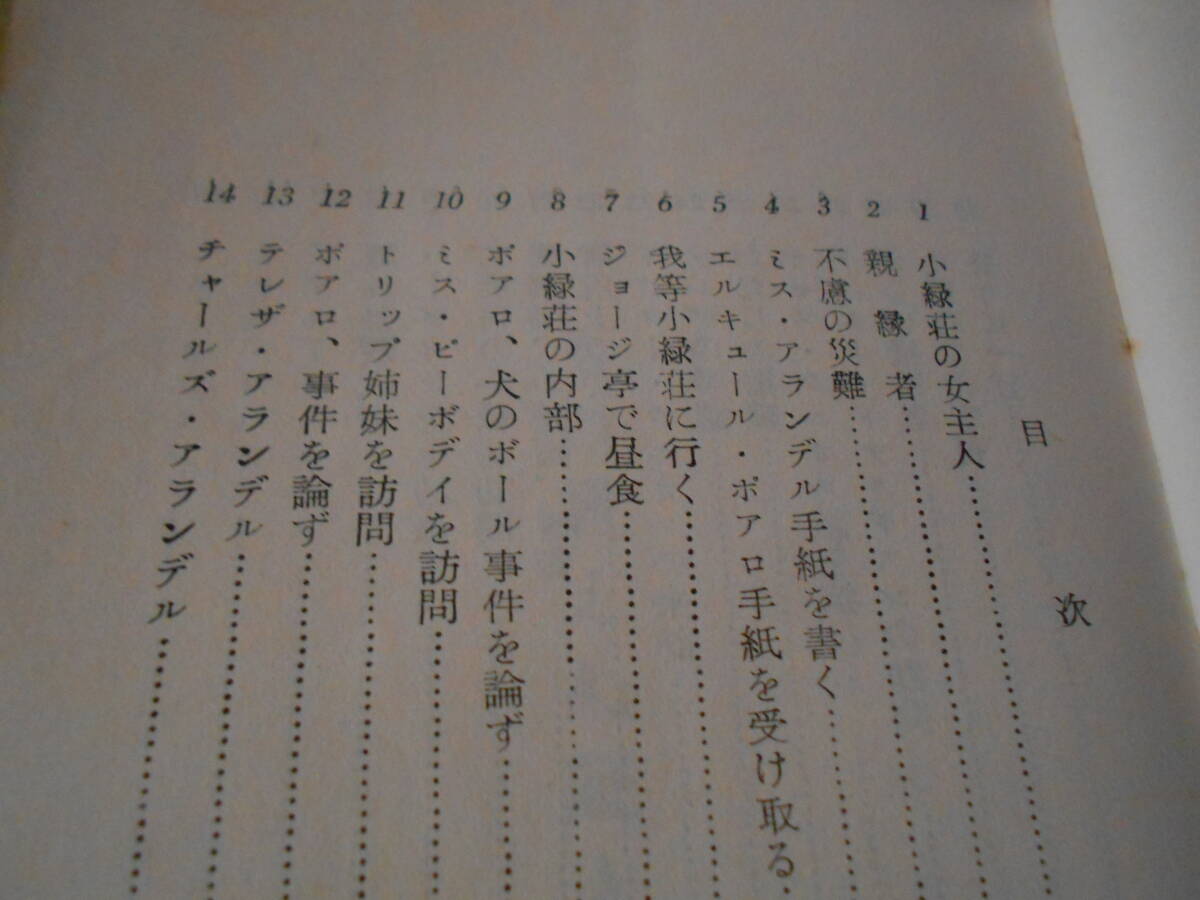 目次
1 小緑荘の女主人
2 親縁者
3 不慮の災難
4 ミス・アランデル手紙を書く
5 エルキュール・ポアロ手紙を受け取る
6 我等小緑荘に行く
7 ジョージ亭で昼食
8 小緑荘の内部
9 ポアロ、犬のボール事件を論ず
10 ミス・ピーボディを訪問
11 トリップ姉妹を訪問
12 ポアロ、事件を論ず
13 テレザ・アランデル
14 チャールズ・アランデル